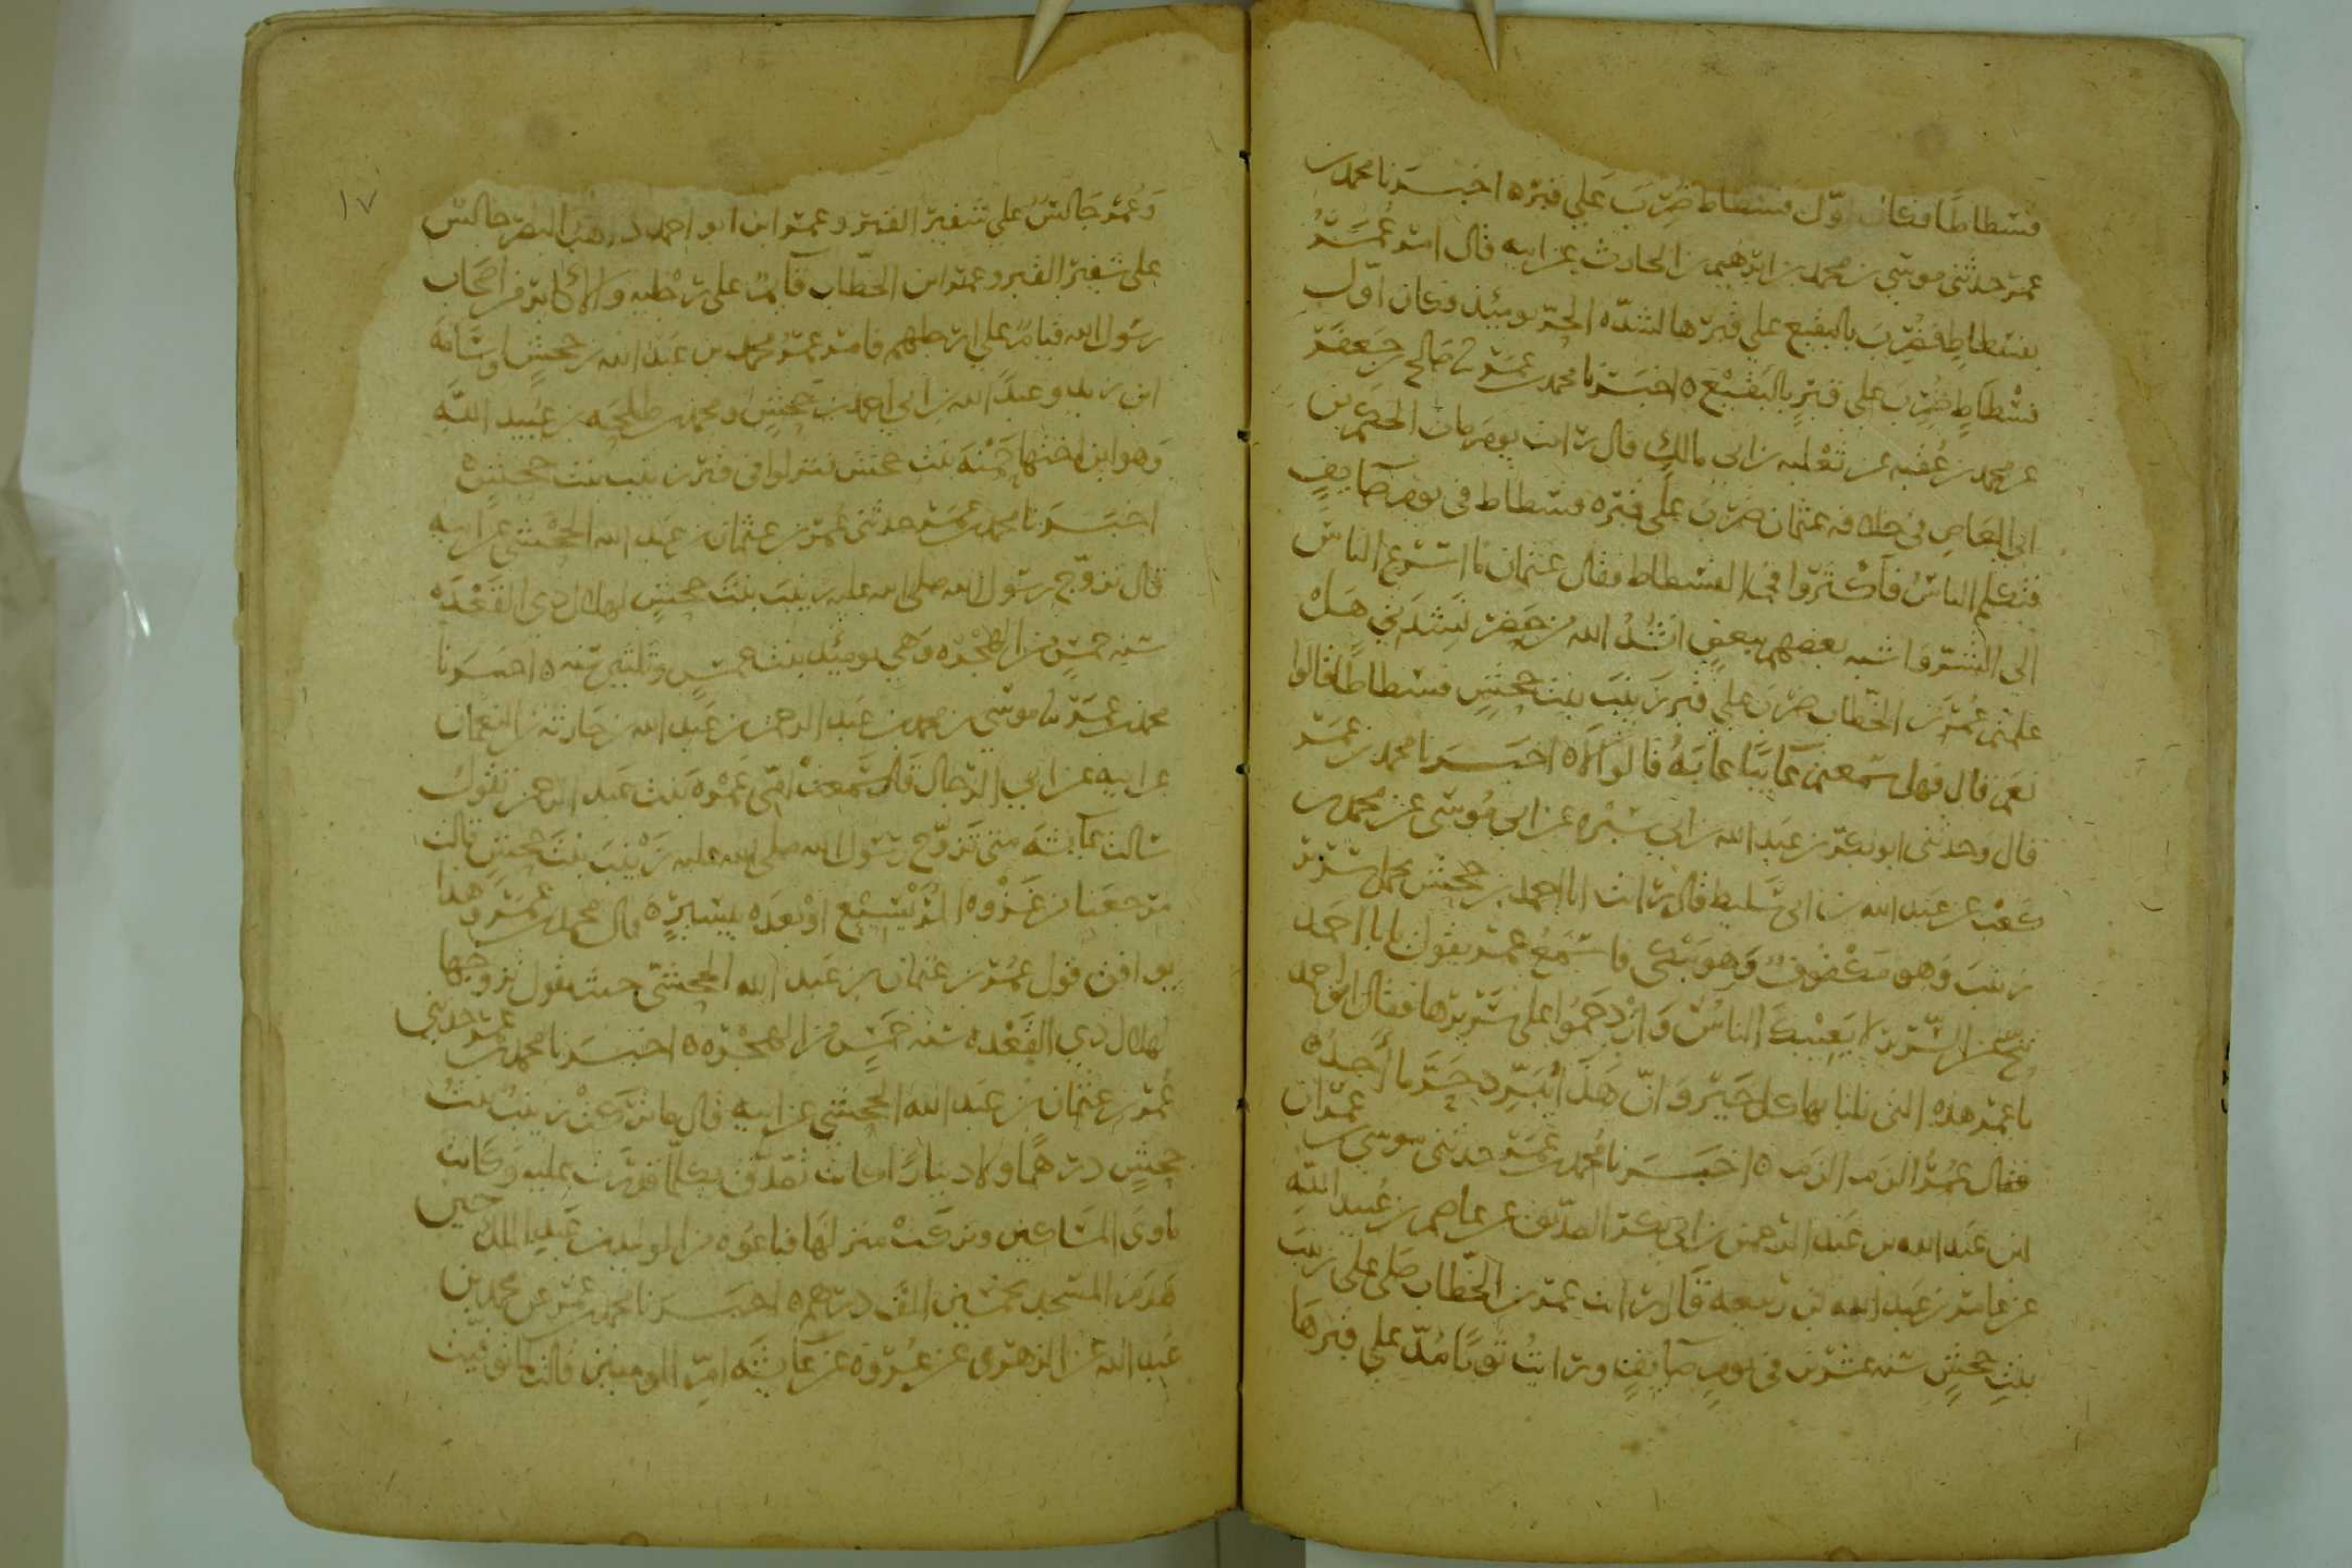 فسطاطا فكان اول فسطاط ضرب على قبره اخبرنا محمد بن
عمر حدثني موسى بن محمد بن ابرهيم بن الحارث عن ابيه قال امر عمر
بفسطاط فضرب بالبقيع على قبرها لشدة الحر يومئذ فكان اول
فسطاط ضرب على قبر بالبقيع اخبرنا محمد بن عمر صالح بن جعفر
عن محمد بن عقبه عن ثعلبه بن ابي مالك قال رايت يوم مات الحكم بن
ابي العاص في خلافه عثمان ضرب على قبره فسطاط في يوم صايف
فتكلم الناس فاكثروا في الفسطاط فقال عثمان ما اسرع الناس
الى الشر واشبه بعضهم ببعض انشد الله من حضر نشدتي هل
علمتم عمر بن الخطاب ضرب على قبر زينب بنت جحش فسطاطا قالوا
نعم قال فهل سمعتم عايبا عابه قالوا لا اخبرنا محمد بن عمر
قال وحدثني ابو بكر بن عبد الله بن ابي سبره عن ابي موسى عن محمد بن
كعب عن عبد الله بن ابي سليط قال رايت ابا احمد بن جحش يحمل سرير
زينب وهو مكفوف وهو يبكي فاسمع عمر يقول يابا احمد
تنح عن السرير لا يعنيك الناس وازدحموا على سريرها فقال ابو احمد
يا عمر هذه التي نلنا بها كل خير وان هذا يبرد حر ما اجد
فقال عمر الزم الزم اخبرنا محمد بن عمر حدثني موسى بن عمران
ابن عبد الله بن عبد الرحمن بن ابي بكر الصديق عن عاصم بن عبيد الله
عن عامر بن عبد الله بن ربيعه قال رايت عمر بن الخطاب صلى على زينب
بنت جحش سنه عشرين في يوم صايف ورايت ثوبا مد على قبرها
١٧
وعمر جالس على شفير القبر وعمر ابن ابو احمد ذاهب البصر جالس
على شفير القبر وعمر ابن الخطاب قايم على رجليه والاكابر من اصحاب
رسول الله قيام على ارجلهم فامر عمر محمد بن عبد الله بن جحش واسامه
ابن زيد وعبد الله بن ابي احمد بن جحش ومحمد بن طلحه بن عبيد الله
وهو ابن اختها حمنه بنت جحش فنزلوا في قبر زينب بنت جحش
اخبرنا محمد بن عمر حدثني عمر بن عثمان بن عبد الله الجحشي عن ابيه
قال تزوج رسول الله صلى الله عليه زينب بنت جحش لهلال ذي القعده
سنه خمس من الهجره وهي يومئذ بنت خمس وثلثين سنه اخبرنا
محمد بن عمر نا موسى بن محمد بن عبد الرحمن بن عبد الله بن حارثه بن النعمان
عن ابيه عن ابي الرجال قال سمعت امي عمره بنت عبد الرحمن تقول
سالت عايشه متى تزوج رسول الله صلى الله عليه زينب بنت جحش قالت
مرجعنا من غزوه المريسيع او بعده بيسير قال محمد بن عمر وهذا
يوافق قول عمر بن عثمان بن عبد الله الجحشي حيث يقول تزوجها
لهلال ذي القعده سنه خمس من الهجره اخبرنا محمد بن عمر حدثني
عمر بن عثمان بن عبد الله الجحشي عن ابيه قال ما تركت زينب بنت
جحش درهما ولا دينارا كانت تصدق بكل ما قدرت عليه وكانت
ماوى المساكين وتركت منزلها فباعوه من الوليد بن عبد الملك حين
هدم المسجد بخمسين الف درهم اخبرنا محمد بن عمر عن محمد بن
عبد الله عن الزهري عن عروه عن عايشه ام المومنين قالت لما توفيت